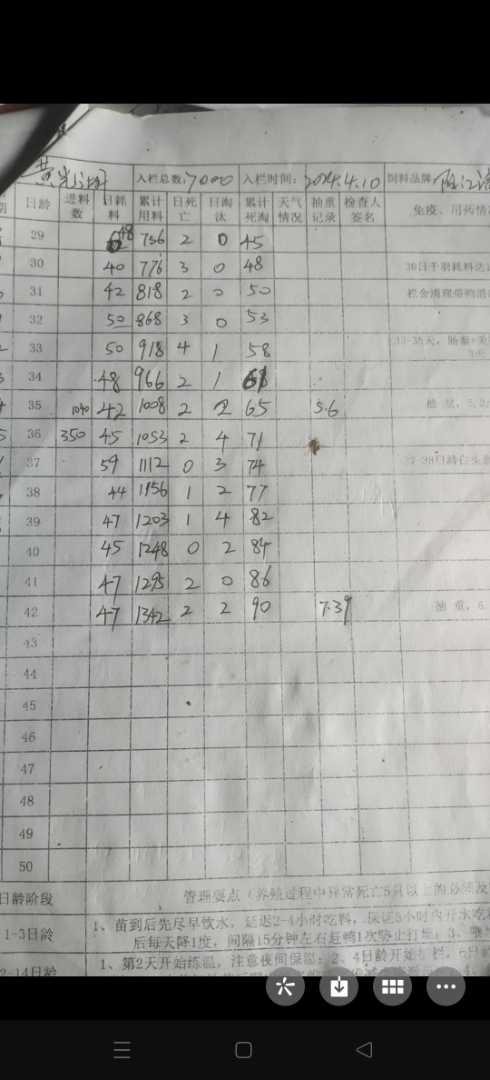 入栏总数: 7000 入栏时间: 2024.4.10 饲料品牌
日龄 进料数 日耗料 累计用料 日死亡 日淘汰 累计死淘 天气情况 抽重记录 检查人签名 免疫、用药情
29 48 736 2 0 45
30 40 776 3 0 48
31 42 818 2 0 50
32 50 868 3 0 53
33 50 918 4 1 58
34 48 966 2 1 61
35 1040 42 1008 2 2 65 5.6
36 350 45 1053 2 4 71
37 59 1112 0 3 74
38 44 1156 1 2 77
39 47 1203 1 4 82
40 45 1248 0 2 84
41 47 1295 2 0 86
42 47 1342 2 2 90 7.39
43
44
45
46
47
48
49
50
日龄阶段 管理要点（养殖过程中异常死亡5只以上的必须及
1-3日龄 1、苗到后先尽早饮水，延迟2-4小时吃料，保证3小时内开水吃
后每天降1度，间隔15分钟左右赶鸭1次防止打堆；3、
2-14日龄 1、第2天开始练温，注意夜间保温；2、4日龄开始